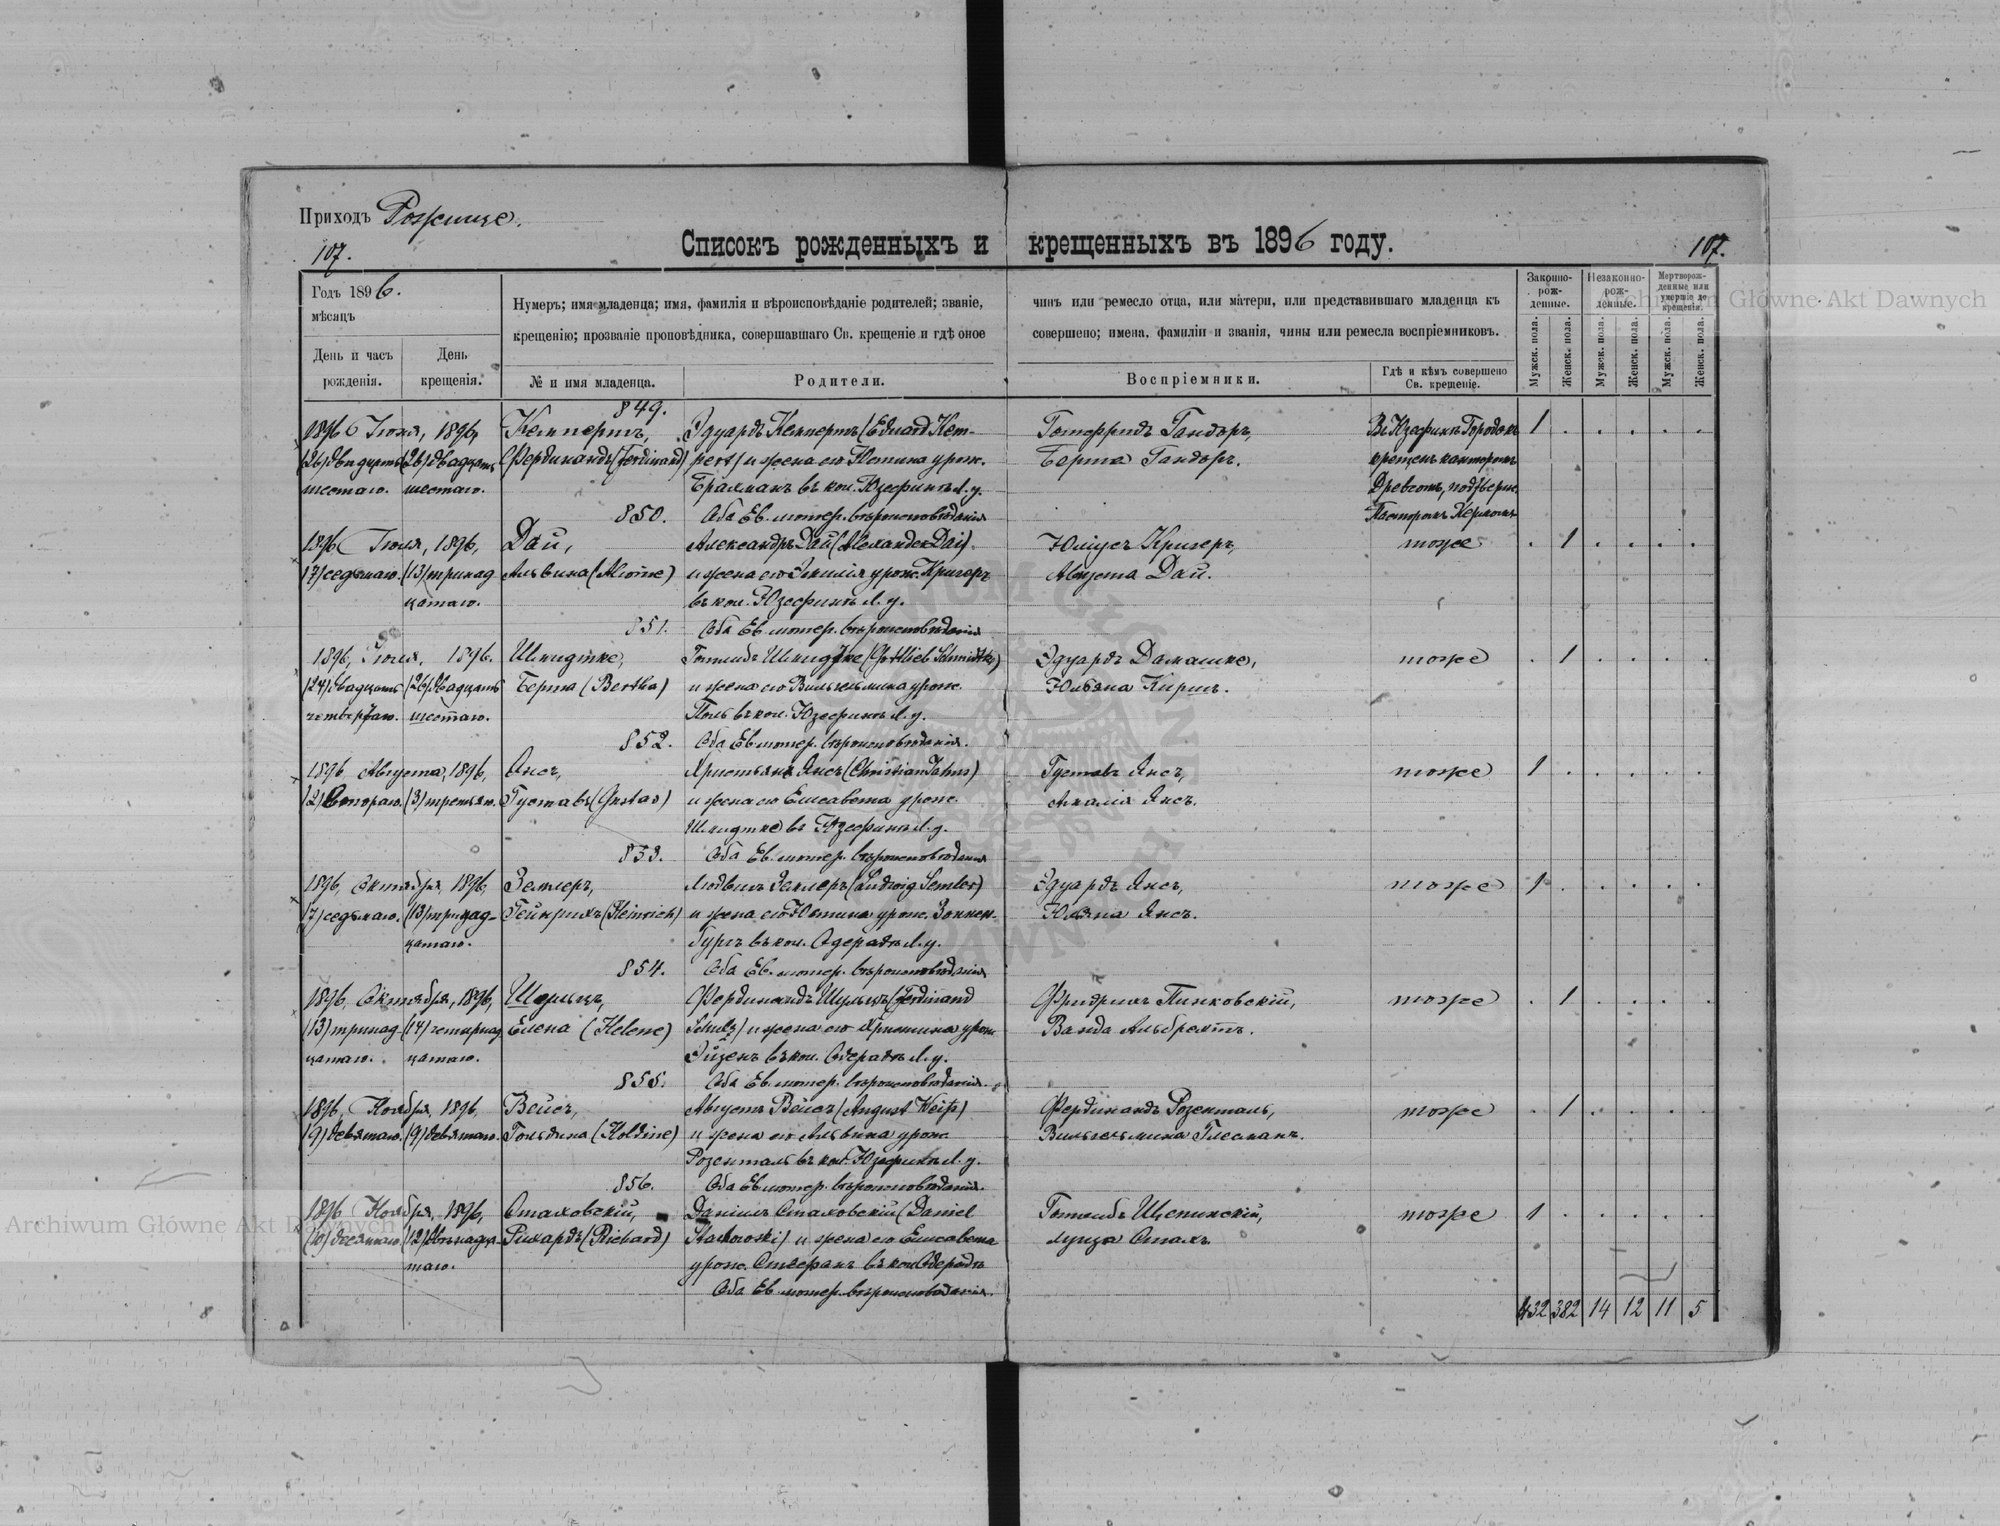 Приходъ Рожище.
107.
Списокъ рожденныхъ и крещенныхъ въ 1896 году.
107.
Годъ 1896.
мѣсяцъ
День и часъ рожденія.
День крещенія.
Нумеръ; имя младенца; имя, фамилія и вѣроисповѣданіе родителей; званіе, чинъ или ремесло отца, или матери, или представившаго младенца къ
крещенію; прозваніе проповѣдника, совершавшаго Св. крещеніе и гдѣ оное совершено; имена, фамиліи и званія, чины или ремесла воспріемниковъ.
№ и имя младенца.
Родители.
Воспріемники.
Гдѣ и кѣмъ совершено Св. крещеніе.
Законно-рож-денные.
Незаконно-рож-денные.
Мертворож-денные или умершіе до крещенія.
Мужск. пола.
Женск. пола.
Мужск. пола.
Женск. пола.
Мужск. пола.
Женск. пола.
849.
1896 Іюля, 1896, Кемпертъ, Эдуардъ Кемпертъ (Eduard Kem- Готфридъ Гандъръ, Въ Юзефинъ Городокъ 1
(26) двадцать (26) двадцать Фердинандъ (Ferdinand) pert) и жена его Юстина урож. Берта Гандъръ. крещенъ канторомъ
шестаго. шестаго. Брахманъ въ кол. Юзефинъ Л. у. Древсомъ, подтверж.
850. Оба Ев. лютер. вѣроисповѣданія Пасторомъ Кермомъ
1896 Іюля, 1896, Дай, Александръ Дай (Alexander Dai) Юліусъ Кригеръ, тоже 1
(7) седьмаго. (13) тринад Альвина (Alwine) и жена его Эмилія урож. Кригеръ Августа Дай.
цатаго. въ кол. Юзефинъ Л. у.
851. Оба Ев. лютер. вѣроисповѣданія
1896, Іюля, 1896. Шмидтке, Готлибъ Шмидтке (Gottlieb Schmidtke) Эдуардъ Дамашке, тоже 1
(24) двадцать (26) двадцать Берта (Bertha) и жена его Вильгельмина урож. Юльяна Киршъ.
четвертаго. шестаго. Поль въ кол. Юзефинъ Л. у.
852. Оба Ев. лютер. вѣроисповѣданія.
1896 Августа, 1896, Янсъ, Христьянъ Янсъ (Christian Jahns) Густавъ Янсъ, тоже 1
(2) втораго. (3) третьяго. Густавъ (Gustav) и жена его Елисавета урож. Амалія Янсъ.
Шмидтке въ Юзефинъ Л. у.
853. Оба Ев. лютер. вѣроисповѣданія
1896, Октября, 1896, Землеръ, Людвигъ Землеръ (Ludwig Semler) Эдуардъ Янсъ, тоже 1
(7) седьмаго. (13) тринад- Гейнрихъ (Heinrich) и жена его Юстина урож. Зоннен- Юльяна Янсъ.
цатаго. бургъ въ кол. Одерадъ Л. у.
854. Оба Ев. лютер. вѣроисповѣданія
1896, Октября, 1896, Шульцъ, Фердинандъ Шульцъ (Ferdinand Фридрихъ Пинковскій, тоже 1
(13) тринад (14) четырнад Елена (Helene) Schulz) и жена его Христина урож Ванда Альбрехтъ.
цатаго. цатаго. Эйзенъ въ кол. Одерадъ Л. у.
855. Оба Ев. лютер. вѣроисповѣданія.
1896, Ноября, 1896, Вейсъ, Августъ Вейсъ (August Weiß) Фердинандъ Розенталь, тоже 1
(9) девятаго. (9) девятаго. Гольдина (Holdine) и жена его Альвина урож. Вильгельмина Глесманъ.
Розенталь въ кол. Юзефинъ Л. у.
856. Оба Ев. лютер. вѣроисповѣданія.
1896 Ноября, 1896, Стаховскій, Даніилъ Стаховскій (Daniel Готлибъ Щепинскій, тоже 1
(10) десятаго (12) двѣнадца- Рихардъ (Richard) Stachowski) и жена его Елисавета Луиза Стахъ
таго. урож. въ кол. Одерадъ
Оба Ев. лютер. вѣроисповѣданія.
432 382 14 12 11 5
Archiwum Główne Akt Dawnych
Archiwum Główne Akt Dawnych